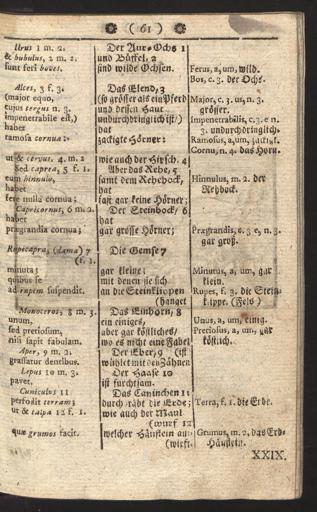 ( 61 )
Urus 1 m. 2.
& bubulus, 2 m. 2.
sunt feri boves.
Alces, 3 f. 3.
(major equo,
cujus tergus n. 3.
impenetrabile est,)
habet
ramosa cornua:
ut & cervus. 4. m. 2
Sed caprea, 5 f. 1.
cum hinnulo,
habet
fere nulla cornua;
Capricornus, 6 m. 2.
habet
prægrandia cornua;
Rupicapra, (dama) 7
(f. 1.
minuta;
quibus se
ad rupem suspendit.
Monoceros, 8 m. 3.
unum,
sed pretiosum,
nisi sapit fabulam.
Aper, 9 m. 2.
grassatur dentibus.
Lepus 10 m. 3.
pavet.
Cuniculus 11
perfodit terram;
ut & talpa 12 f. 1.
quæ grumos facit.
Der Aur-Ochs 1
und Büffel, 2
sind wilde Ochsen.
Das Elend, 3
(so grösser als ein Pferd
und dessen Haut
undurchdringlich ist/)
hat
zackigte Hörner:
wie auch der Hirsch. 4
Aber das Rehe, 5
samt dem Rehbock,
hat
fast gar keine Hörner;
Der Steinbock/ 6
hat
gar grosse Hörner;
Die Gemse 7
gar kleine:
mit denen sie sich
an die Steinklippen
(hanget
Das Einhorn, 8
ein einiges,
aber gar köstliches/
wo es nicht eine Fabel
Der Eber, 9 (ist
wütet mit den Zähnen
Der Haase 10
ist furchtsam.
Das Caninchen 11
durchgräbt die Erde;
wie auch der Maul
(wurf 12
welcher Häuflein auf-
(wirft.
Ferus, a, um, wild.
Bos, c. 3. der Ochs.
Major, c. 3. us, n. 3.
grösser.
Impenetrabilis, c. 3. e n.
3. undurchdringlich.
Ramosus, a, um, zackigt.
Cornu, n. 4. das Horn.
Hinnulus, m. 2. der
Rehbock.
Prægrandis, c. 3. e, n. 3.
gar groß.
Minutus, a, um, gar
klein.
Rupes, f. 3. die Stein-
klippe. (Fels)
Unus, a, um, einig.
Pretiosus, a, um, gar
köstlich.
Terra, f. 1. die Erde.
Grumus, m. 2. das Erd-
Häuflein.
XXIX.